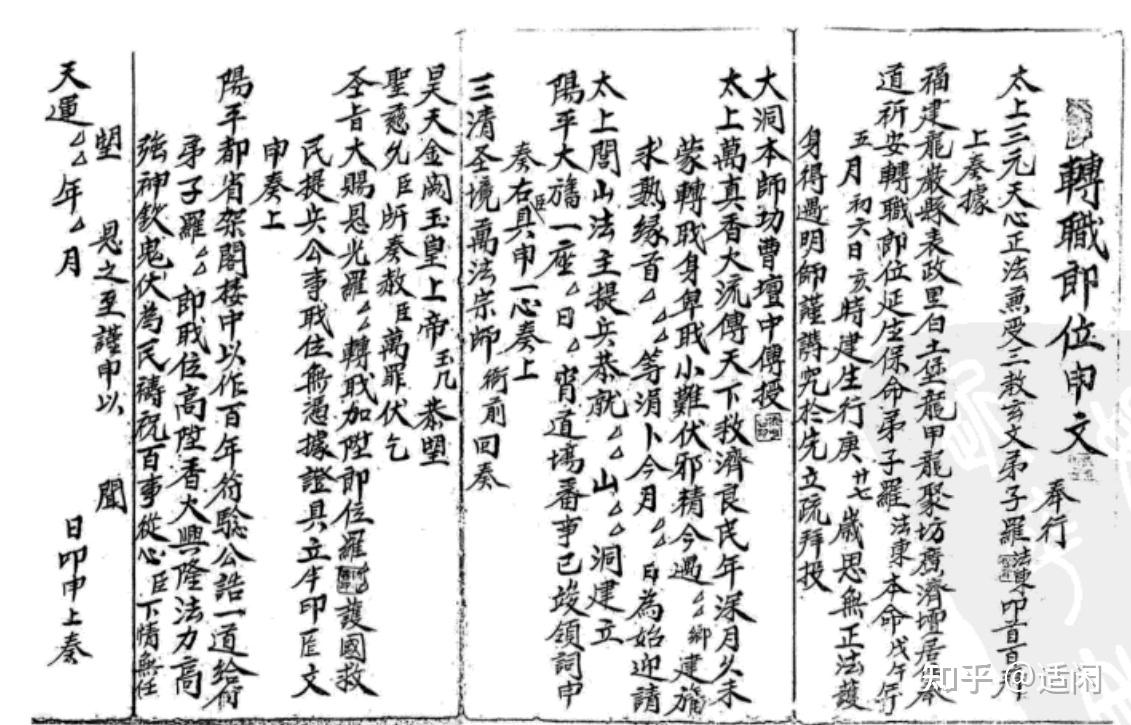 轉職即位申文
奉行
太上三元天心正法兼受三教玄文弟子羅法東叩首百拜
上奏據
福建龍嚴縣表政里白土堡龍甲龍聚坊廣濟壇居奉
道祈安轉職即位延生保命弟子羅法東本命戊午年
五月初六日亥時建生行庚廿七歲思無正法護
身得遇明師謹請究於先立疏拜投
大洞本師功曹壇中傳授
太上萬真香火流傳天下救濟良民年深月久未
蒙轉職身卑職小難伏邪精今遇厶厶鄉建旛
求熟緣首厶厶厶等涓卜今月厶厶日為始迎請
太上閭山法主提兵恭就厶厶山厶厶洞建立
陽平大旛一座厶日厶宵道場畨事已竣領詞申
奏右具臣申一心奏上
三清圣境萬法宗師 衙前回奏
昊天金闕玉皇上帝玉几恭朢
聖慈允臣所奏赦臣萬罪伏乞
圣旨大賜恩光羅厶厶轉職加陞即位羅護國救
民提兵公事職位無憑據證具立牛印匠文
申奏上
陽平都省架閣樓中以作百年符驗公誥一道給付
弟子羅厶厶即職位高陞香火興隆法力高
強神欽鬼伏為民禱祝百事從心臣下情無任
朢 恩之至謹申以 聞
天運厶厶年厶月 日叩申上奏
知乎 @适闲